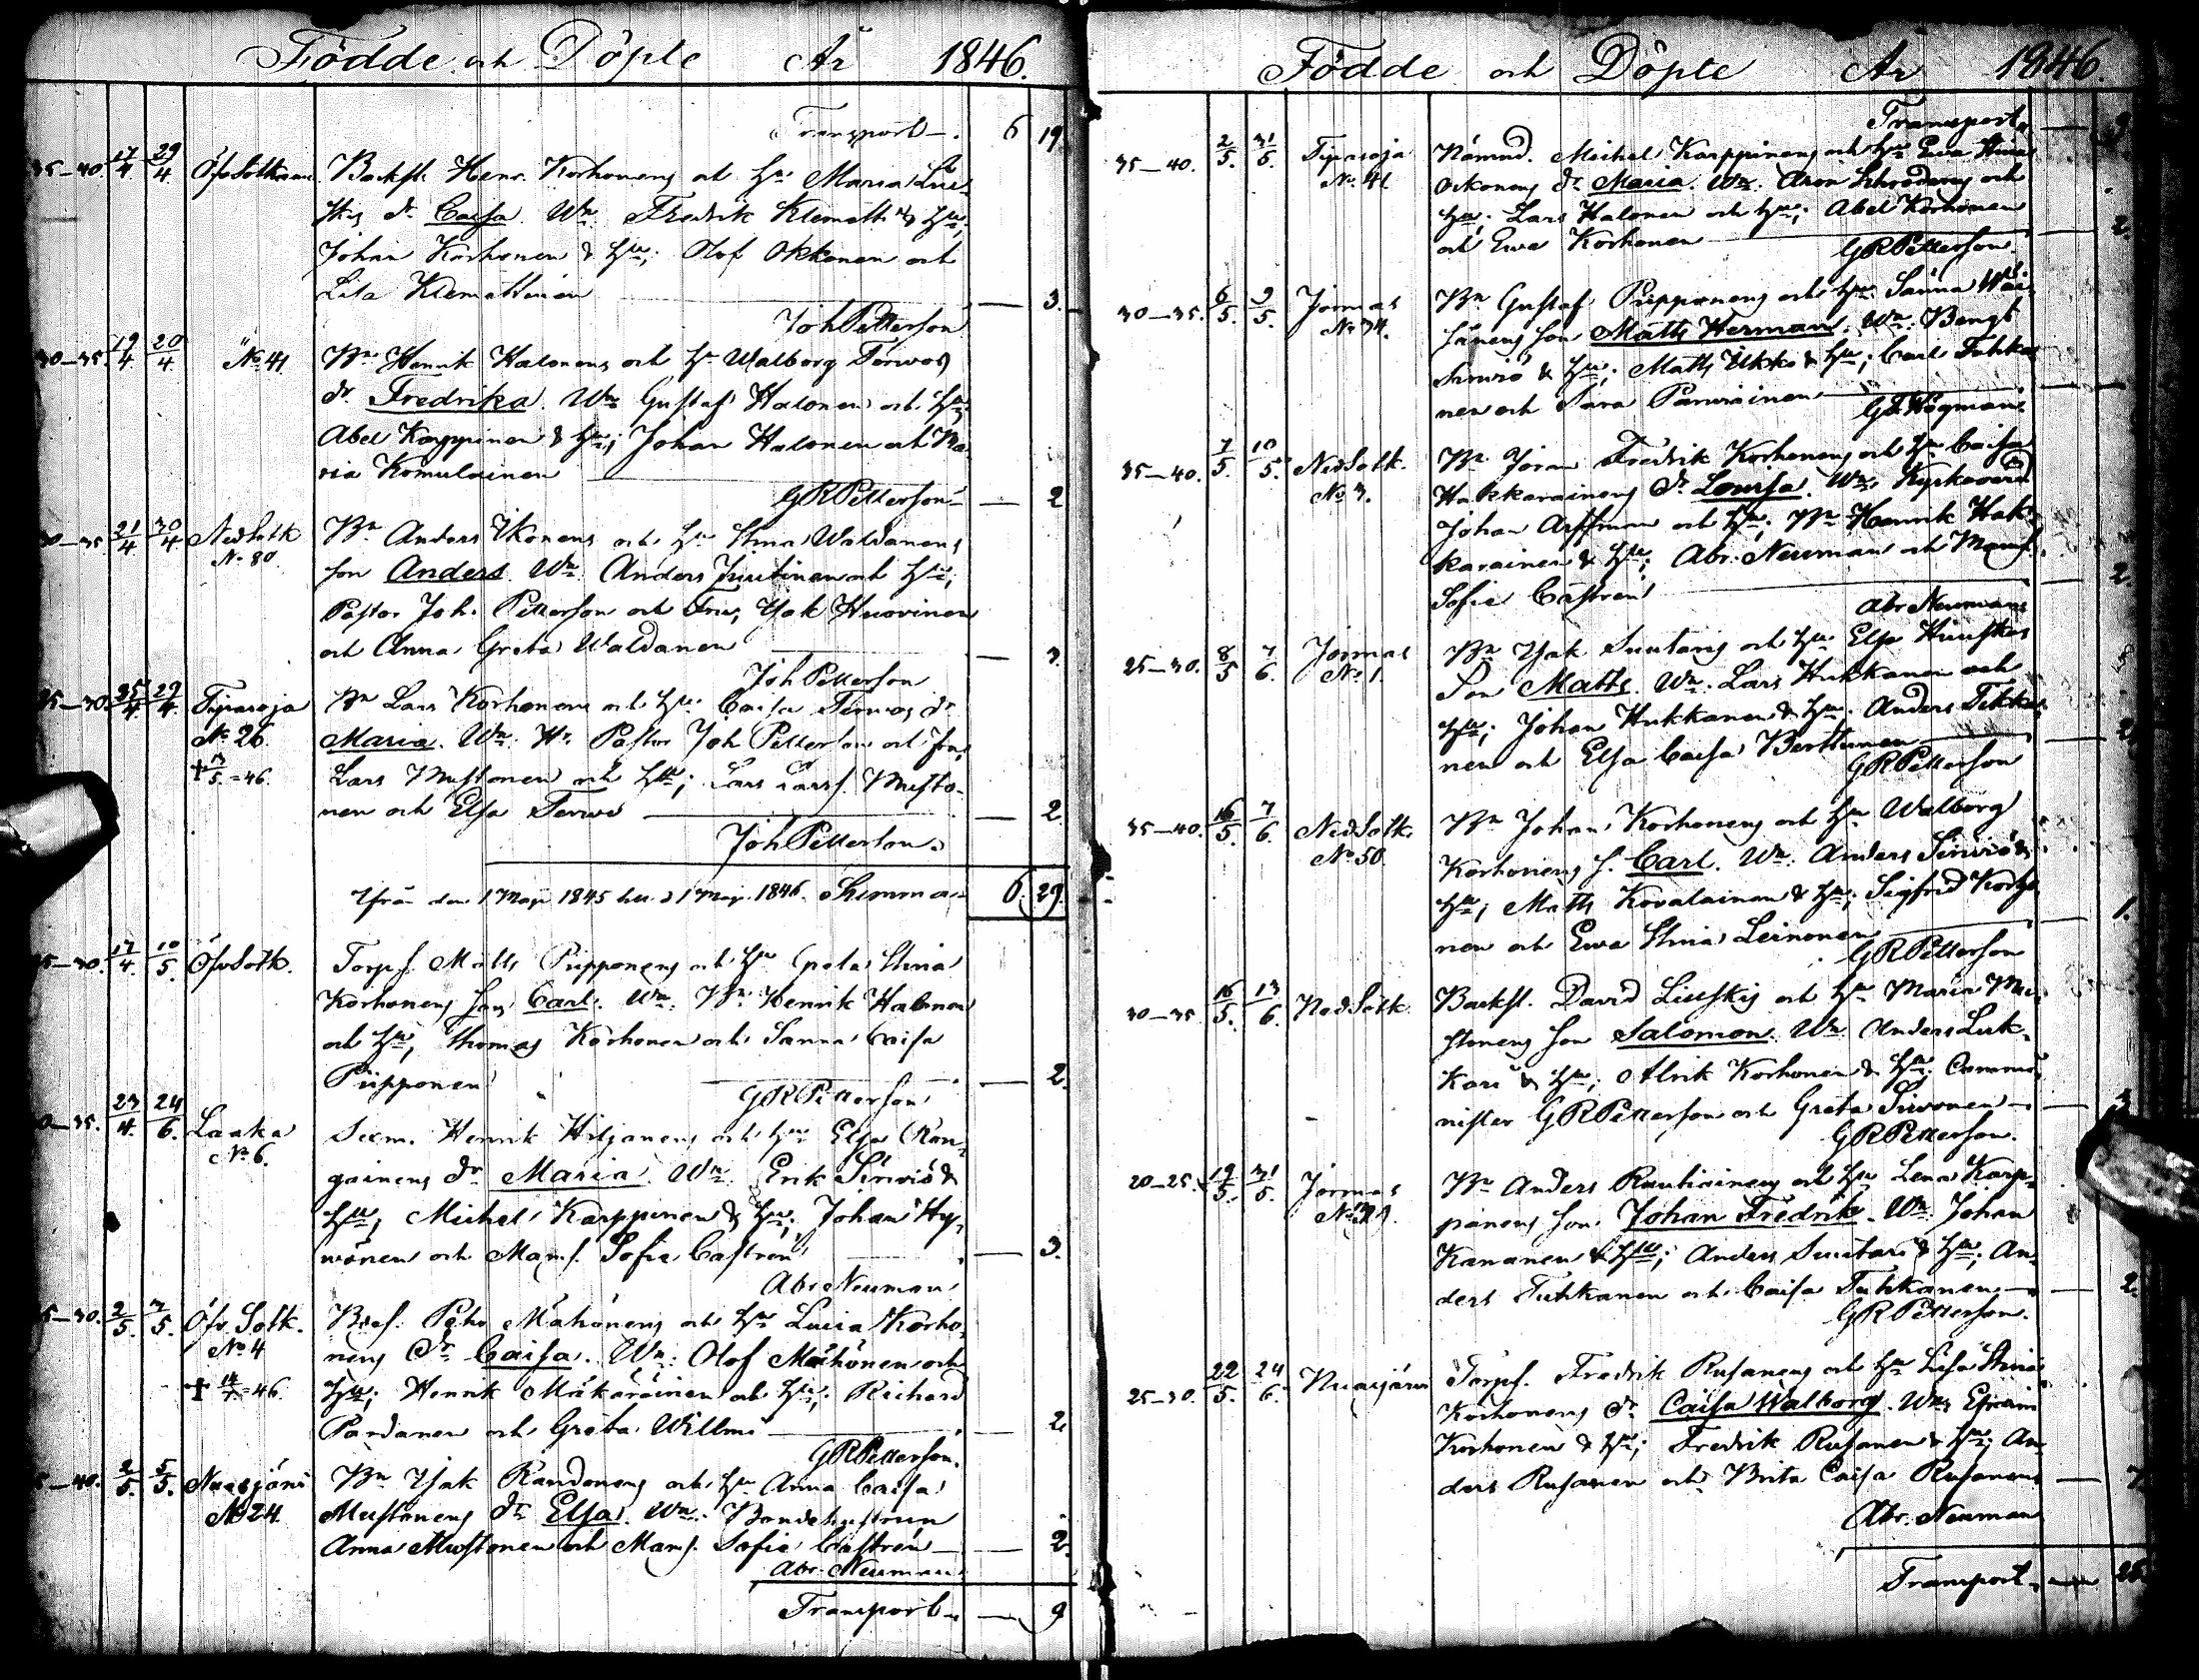 Födde och Döpte År 1846.
Transport — 6 19
35–40. 17/4 29/4. Öfv Sotkamo Backst. Henr. Korhonens och hu Maria Lius
kis dr Caisa. Wn Fredrik Klemetti & hu;
Johan Korhonen & hu; Olof Okkonen och
Lisa Klemettinen — 3.
Joh Petterson
30–35. 19/4 20/4 " No 41 Bn Henrik Halonens och hu Walborg Terwos
dr Fredrika. Wn Gustaf Halonen och hu;
Abel Karppinen & hu; Johan Halonen och Ma
ria Komulainen
GR Petterson — 2
30–35 21/4 30/4 Ned Sotk No 80 Bn Anders Ikonens och hu Stina Waldanens
son Anders. Wn Anders Juutinen och hu;
Pastor Joh. Petterson och Fru, Isak Huovinen
och Anna Greta Waldanen — 3.
Joh Petterson
25–30. 25/4 29/4. Tipasoja No 26. Bn Lars Korhonens och hu Caisa Terwos dr
Maria. Wn Hr Pastor Joh Petterson och Fru,
† 13/5 = 46. Lars Mustonen och hu; Lars Larss. Musto-
nen och Elsa Terwo — 2
Joh Petterson
Ifrån den 1 Maji 1845 till d 1 Maji 1846. Summa 6. 29.
25–30. 17/4. 10/5. Öfv Sotk. Torp. Matts Piipponens och hu Greta Stina
Korhonens son Carl. Wn. Bn Henrik Halonen
och hu, Thomas Korhonen och Sanna Caisa
Piipponen — 2.
GR Petterson
30–35. 23/4. 24/6. Laaka No 6. Sexm. Henrik Hiljanens och hu Elsa Kan
gainens dr Maria. Wn. Erik Sirviö &
hu; Michel Karppinen & hu; Johan Hy
wönen och Mams. Sofia Castrén — 3.
Abr Neuman
25–30. 2/5. 3/5. Öfv Sotk. No 4 Petr Mähönens och hu Lucia Korho
nens dr Caisa. Wn: Olof Mähönen och
† 14/7 = 46. hu; Henrik Mäkäräinen och hu; Richard
Pardanen och Greta Willmi — 2
GR Petterson.
35–40. 2/5. 5/5. Nuasjärvi No 24. Bn Isak Randonens och hu Anna Caisa
Mustonens dr Elsa. Wn: Bondehustrun
Anna Mustonen och Mams. Sofia Castrén — 2.
Abr. Neuman
Transport — 9
Födde och Döpte År 1846.
Transport —
35–40. 2/5. 31/5. Tipasoja No 41. Nämnd. Michel Karppinens och hu Ewa Stina
Ockonens dr Maria. Wn. Aron Schroderus och
hu; Lars Halonen och hu; Abel Korhonen
och Ewa Korhonen — 2.
GR Petterson.
30–35. 6/5. 9/5. Jormas No 34. Bn Gustaf Piipponens och hu Sanna Wäi
sänens son Matts Herman. Wn: Bengt
Sirviö & hu; Matts Ukko & hu; Carl Tuhka
nen och Sara Parviainen —
Högman
35–40. 7/5 10/5. Ned Sotk. No 3. Bn Jöran Fredrik Korhonens och hu Caisa
Hakkarainens dr Lovisa. Wn: Kyrkovärd
Johan Arffman och hu; Bn Henrik Hak
karainen & hu; Abr. Neuman och Mams.
Sofia Castrén — 2.
Abr Neuman
25–30. 8/5 7/6. Jormas No 1. Bn Isak Suutaris och hu Elsa Huuskos
Son Matts. Wn. Lars Hukkanen och
hu; Johan Hukkanen & hu. Anders Tikka
nen och Elsa Caisa Berttunen — 2
GR Petterson
35–40. 16/5. 7/6. Ned Sotk. No 50. Bn Johan Korhonens och hu Walborg
Korhonens s. Carl. Wn: Anders Sirviö &
hu; Matts Kovalainen & hu; Sigfrid Korho
nen och Ewa Stina Leinonen — 1.
GR Petterson
30–35 16/5. 13/6. Ned Sotk. Backst. David Liuskis och hu Maria Mu
stonens son Salomon. Wn Anders Luk-
kari & hu; Olrik Korhonen & hu; Commi
nister GR Petterson och Greta Sirvonen —
GR Petterson.
20–25. 19/5. 31/5. Jormas Bn Anders Rautiainens och hu Lena Karp-
panens son Johan Fredrik. Wn. Johan
Kananen & hu; Anders Suutari & hu; An
ders Tuhkanen och Caisa Tuhkanen — 2.
GR Petterson.
25–30. 22/5. 24/6. Nuasjärvi Torp. Fredrik Rusanens och hu Lisa Stina
Korhonens dr Caisa Walborg. Wn: Efraim
Korhonen & hu; Fredrik Rusanen & hu; An
ders Rusanen och Brita Caisa Rusanen —
Abr. Neuman
Transport —